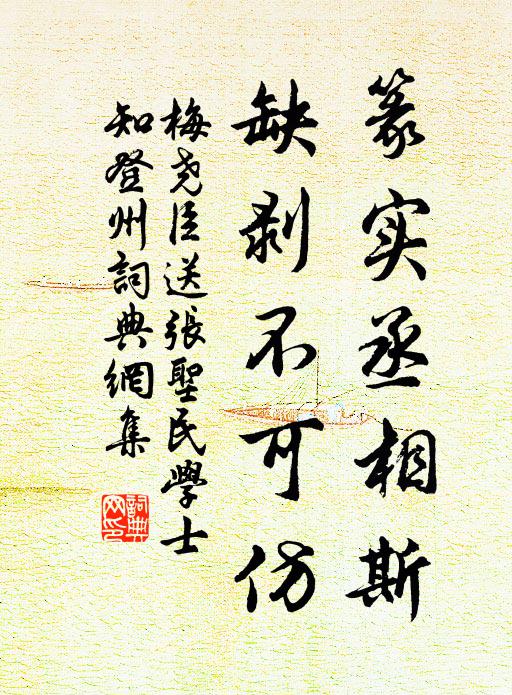 篆实丞相斯
缺剥不可仿
梅尧臣送張聖民學士
知登州詞典網集
詞典
网印